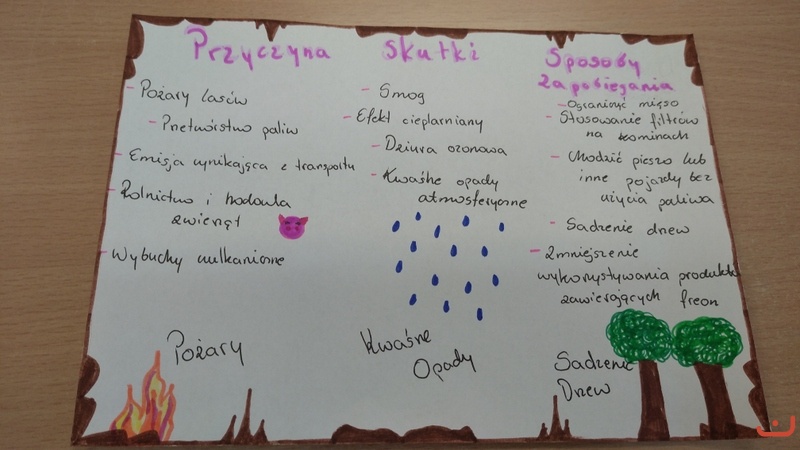 Przyczyna
- Pożary lasów
- Przetwórstwo paliw
- Emisja wynikająca z transportu
- Rolnictwo i hodowla
zwierząt
- Wybuchy wulkaniczne
Pożary
Skutki
- Smog
- Efekt cieplarniany
- Dziura ozonowa
- Kwaśne opady
atmosferyczne
Kwaśne
Opady
Sposoby
Zapobiegania
- Ograniczyć mięso
- Stosowanie filtrów
na kominach
- Chodzić pieszo lub
inne pojazdy bez
użycia paliwa
- Sadzenie drzew
- Zmniejszenie
wykorzystywania produktów
zawierających freon
Sadzenie
Drzew